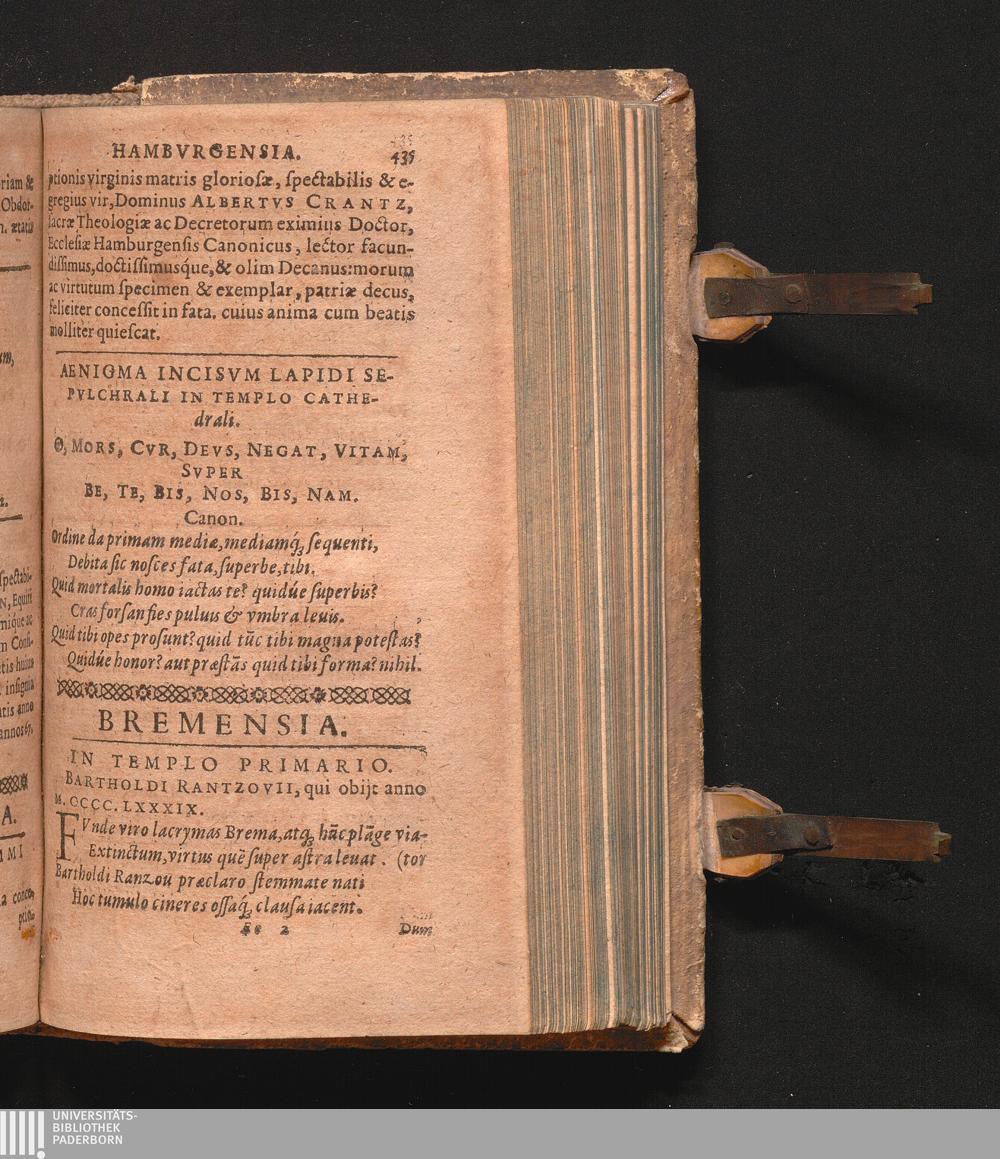 HAMBVRGENSIA. 435
ptionis virginis matris gloriosæ, spectabilis & e-
gregius vir, Dominus ALBERTVS CRANTZ,
sacræ Theologiæ ac Decretorum eximius Doctor,
Ecclesiæ Hamburgensis Canonicus, lector facun-
dissimus, doctissimusq́ue, & olim Decanus: morum
ac virtutum specimen & exemplar, patriæ decus,
feliciter concessit in fata. cuius anima cum beatis
molliter quiescat.
AENIGMA INCISVM LAPIDI SE-
PVLCHRALI IN TEMPLO CATHE-
drali.
O, MORS, CVR, DEVS, NEGAT, VITAM,
SVPER
BE, TE, BIS, NOS, BIS, NAM.
Canon.
Ordine da primam mediæ, mediamq́; sequenti,
Debita sic nosces fata, superbe, tibi.
Quid mortalis homo iactas te? quidúe superbis?
Cras forsan fies puluis & vmbra leuis.
Quid tibi opes prosunt? quid tūc tibi magna potestas?
Quidúe honor? aut præstās quid tibi forma? nihil.
BREMENSIA.
IN TEMPLO PRIMARIO.
BARTHOLDI RANTZOVII, qui obijt anno
M. CCCC. LXXXIX.
FVnde viro lacrymas Brema, atq́; hūc plāge via-
Extinctum, virtus quē super astra leuat. (tor
Bartholdi Ranzou præclaro stemmate nati
Hoc tumulo cineres ossaq́; clausa iacent.
Ee 2 Dum
riam &
Obdor-
n. ætatis
um,
2.
spectabi-
N, Equiti
miq́ue ac
m Consi-
tis huius
insignia
atis anno
annos 67.
A.
MMI
a conce-
ptio-
UNIVERSITÄTS-
BIBLIOTHEK
PADERBORN